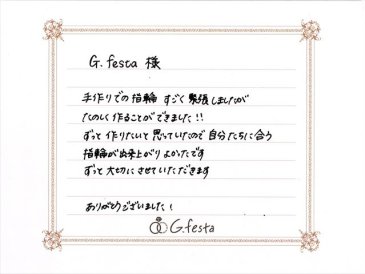 G.festa 様
手作りでの指輪 すごく緊張しましたが
たのしく作ることができました!!
ずっと作りたいと思っていたので自分たちに合う
指輪が出来上がりよかったです
ずっと大切にさせていただきます
ありがとうございました!
G.festa